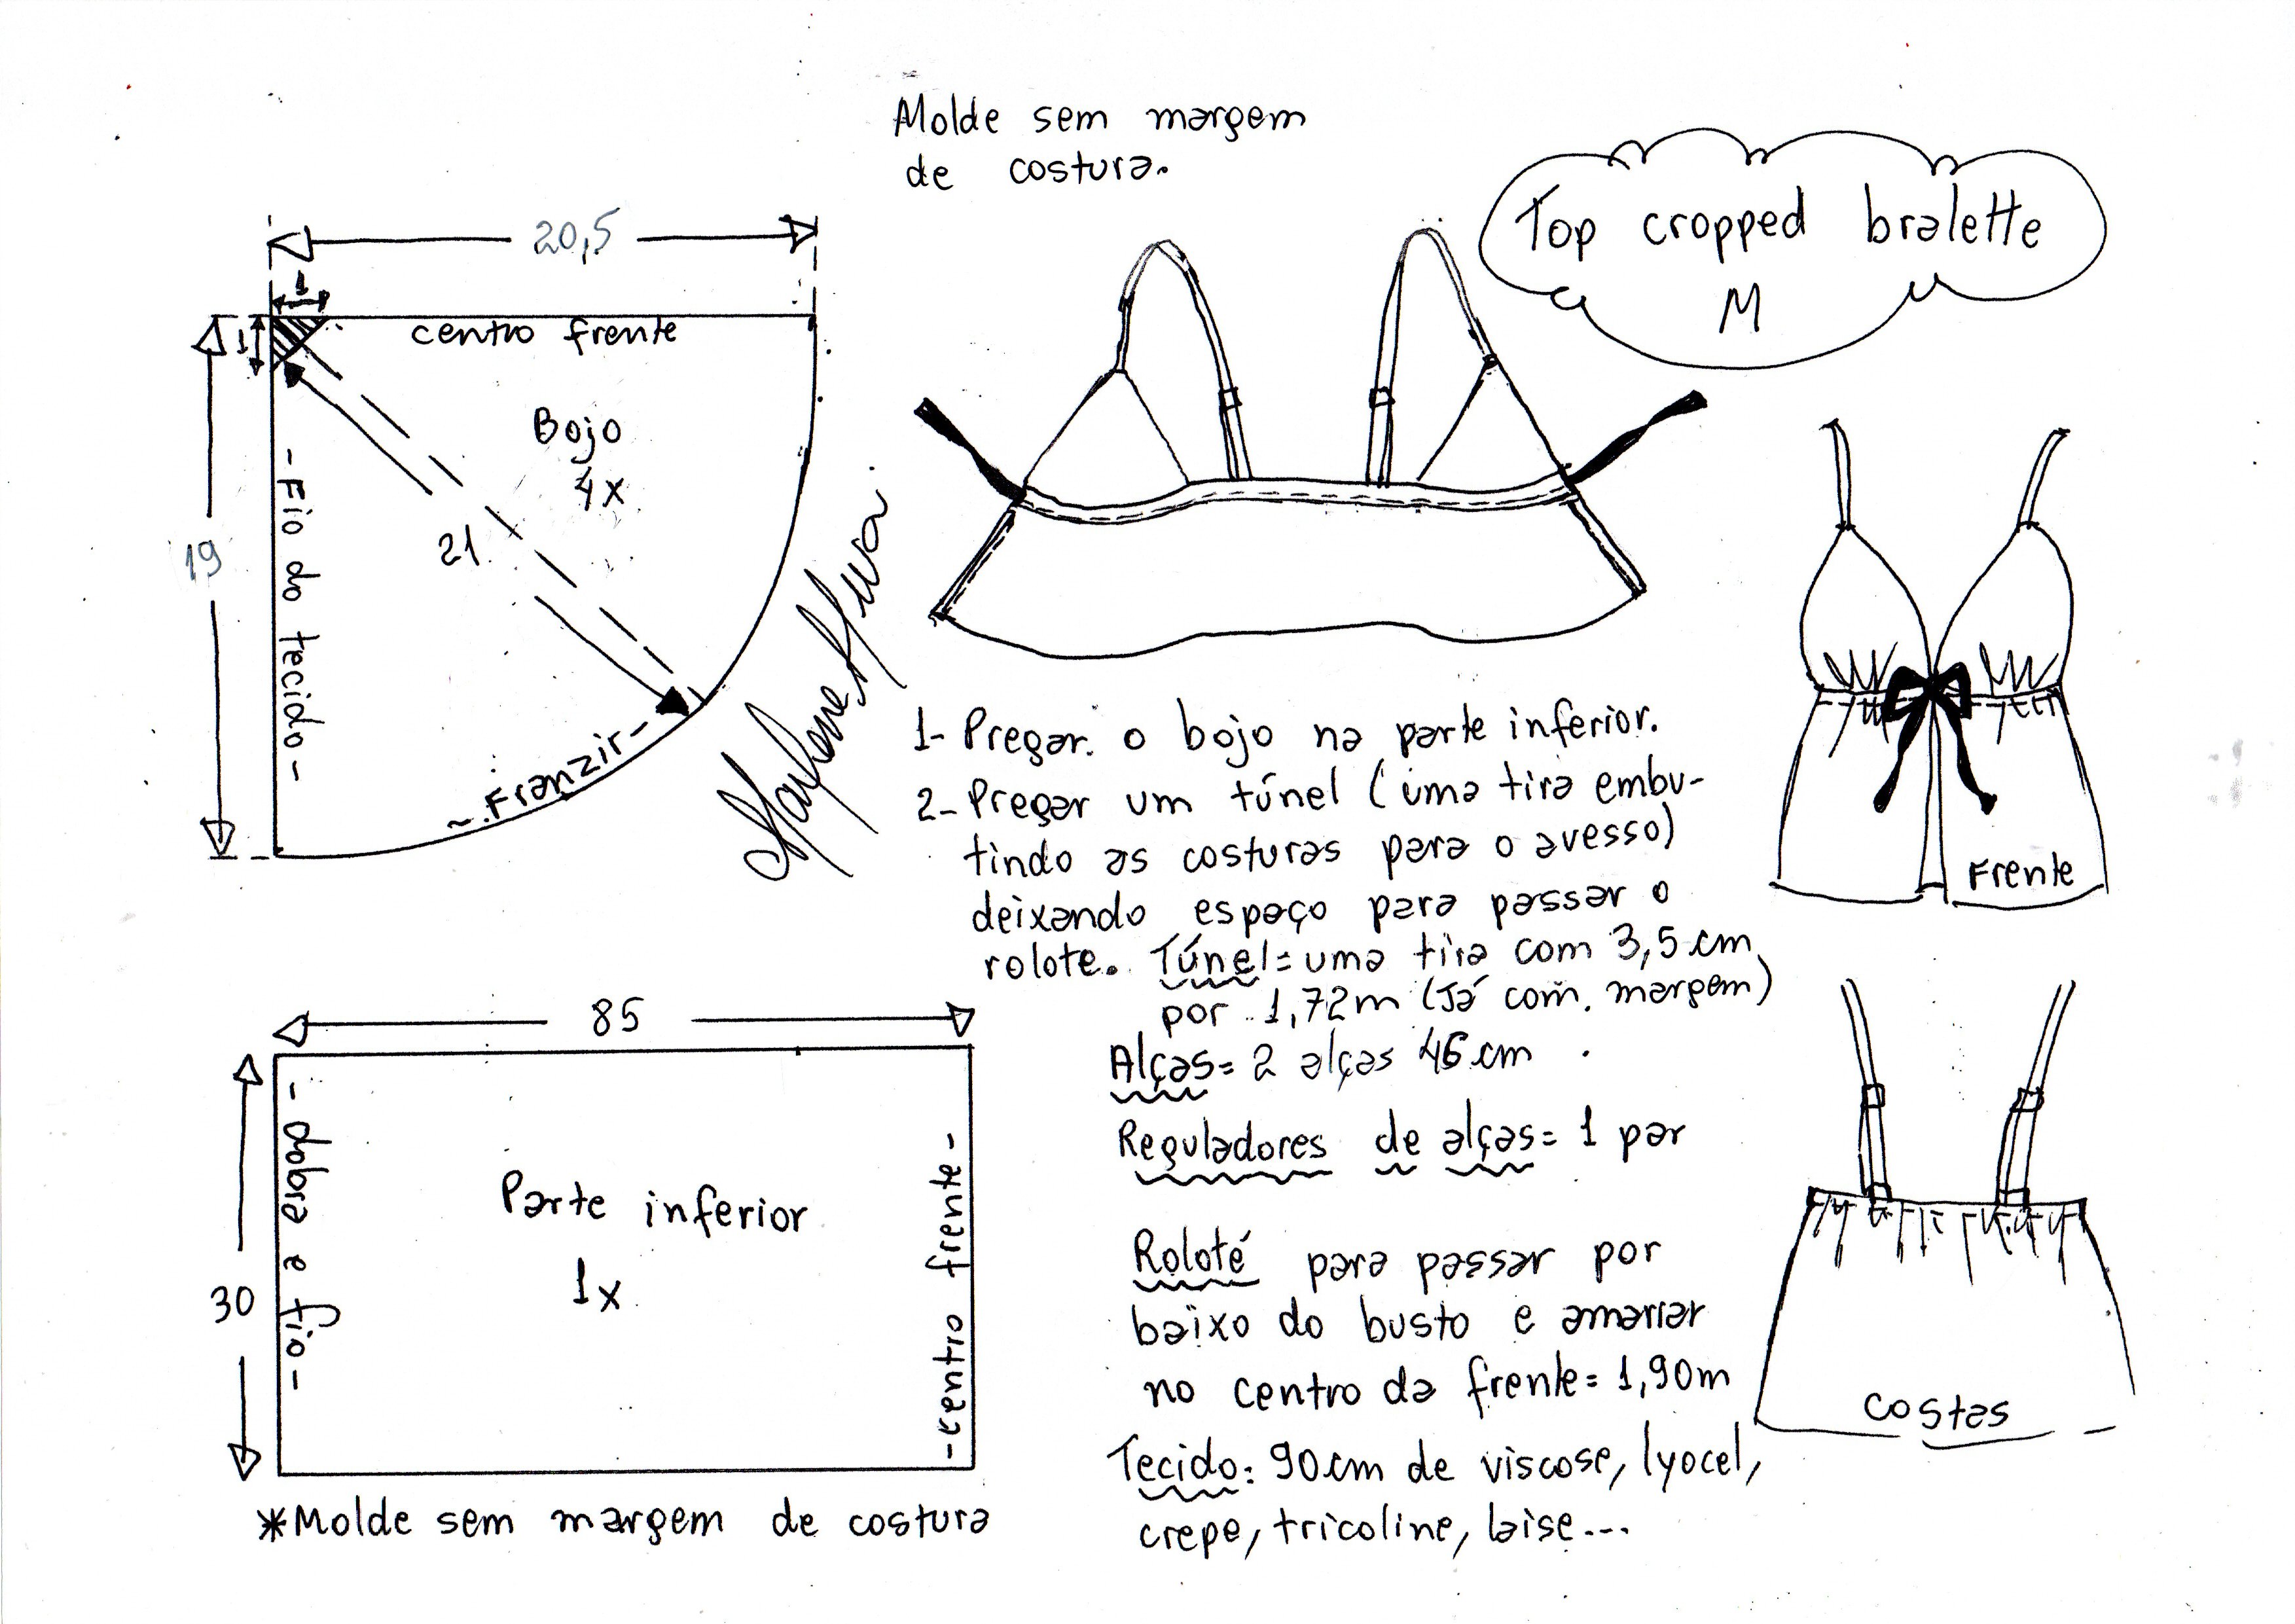 Molde sem margem
de costura.
Top cropped bralette
M
20,5
1
1
centro frente
Bojo
4x
19
-Fio do tecido-
21
-Franzir-
Marlene Mukai
Frente
1- Pregar o bojo na parte inferior.
2- Pregar um túnel (uma tira embu-
tindo as costuras para o avesso)
deixando espaço para passar o
rolote. Túnel= uma tira com 3,5 cm
por 1,72m (Já com margem)
Alças= 2 alças 46 cm
Reguladores de alças= 1 par
Roloté para passar por
baixo do busto e amarrar
no centro da frente= 1,90m
Tecido: 90cm de viscose, lyocel,
crepe, tricoline, laise...
Costas
85
30
-dobra e fio-
Parte inferior
1x
-centro frente-
*Molde sem margem de costura